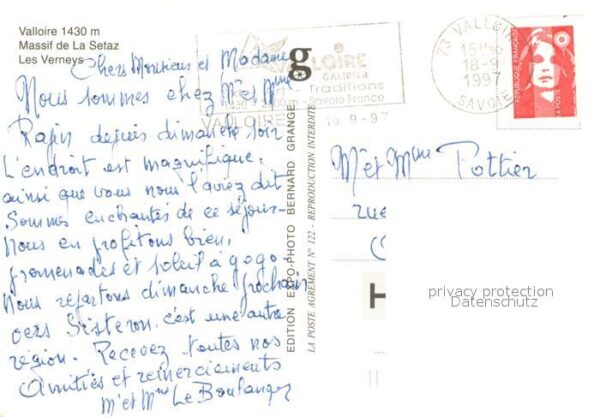 Valloire 1430 m
Massif de La Setaz
Les Verneys
Chers Monsieur et Madame
Nous sommes chez Mr et Mme
Rapin depuis dimanche soir
L'endroit est magnifique,
ainsi que vous nous l'aviez dit
Sommes enchantés de ce séjour-
Nous en profitons bien,
promenades et soleil à gogo-
Nous repartons dimanche prochain
vers Sisteron, c'est une autre
région. Recevez toutes nos
Amitiés et remerciements
Mr et Mme Le Boulanger
g
EDITION EXPO-PHOTO BERNARD GRANGE
LA POSTE AGREMENT N° 122 - REPRODUCTION INTERDITE
LOIRE
GALIBIER
Traditions
Savoie France
VALLOIRE
18-9-97
73 VALLOIRE
15H
18-9
1997
SAVOIE
REPUBLIQUE FRANÇAISE
Mr et Mme Pottier
rue
H
privacy protection
Datenschutz